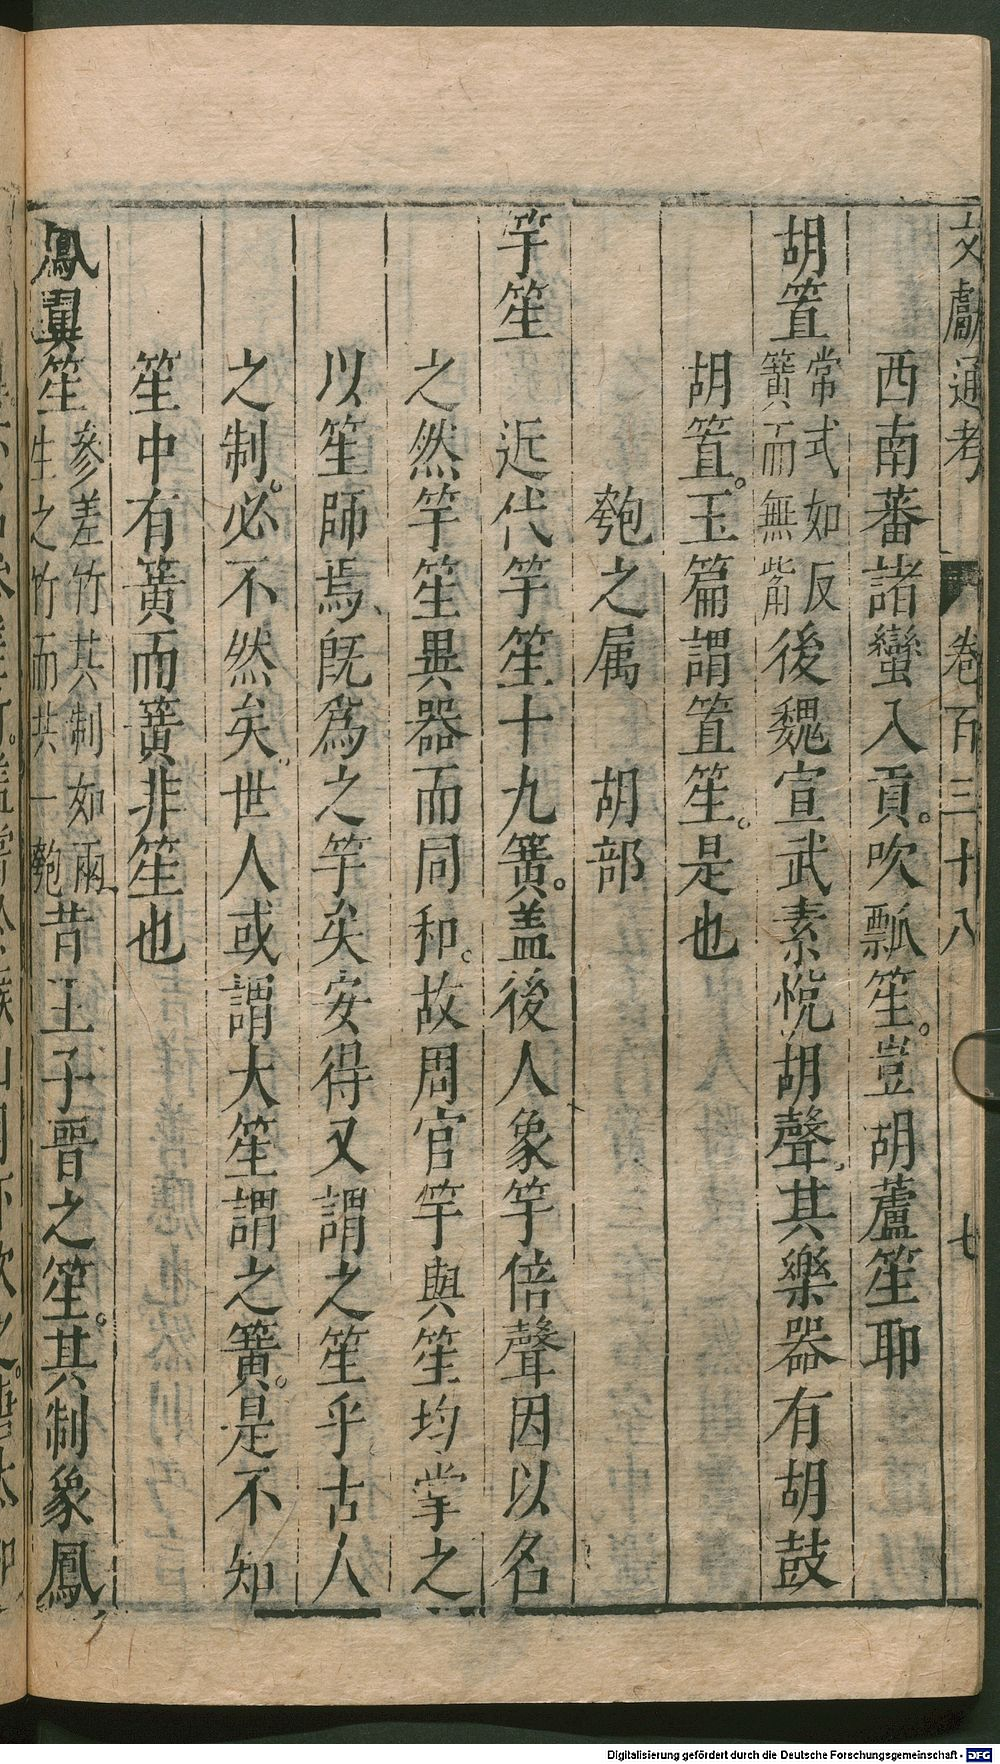 文獻通考 卷百三十八 七
西南蕃諸蠻入貢。吹瓢笙。豈胡蘆笙耶
胡𥫱
常式如反
簧而無觜
後魏宣武素悅胡聲。其樂器有胡鼓
胡𥫱。玉篇謂𥫱笙。是也
匏之属 胡部
竽笙 近代竽笙十九簧。盖後人象竽倍聲因以名
之然竽笙異器而同和。故周官竽與笙均掌之
以笙師焉、旣爲之竽矣安得又謂之笙乎古人
之制。必不然矣。世人或謂大笙謂之簧。是不知
笙中有簧而簧非笙也
鳳翼笙
參差竹其制如兩
生之竹而共一匏
昔王子晉之笙。其制象鳳
Digitalisierung gefördert durch die Deutsche Forschungsgemeinschaft - DFG